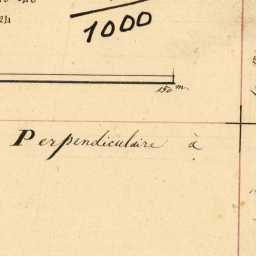 1000
150 m.
Perpendiculaire à